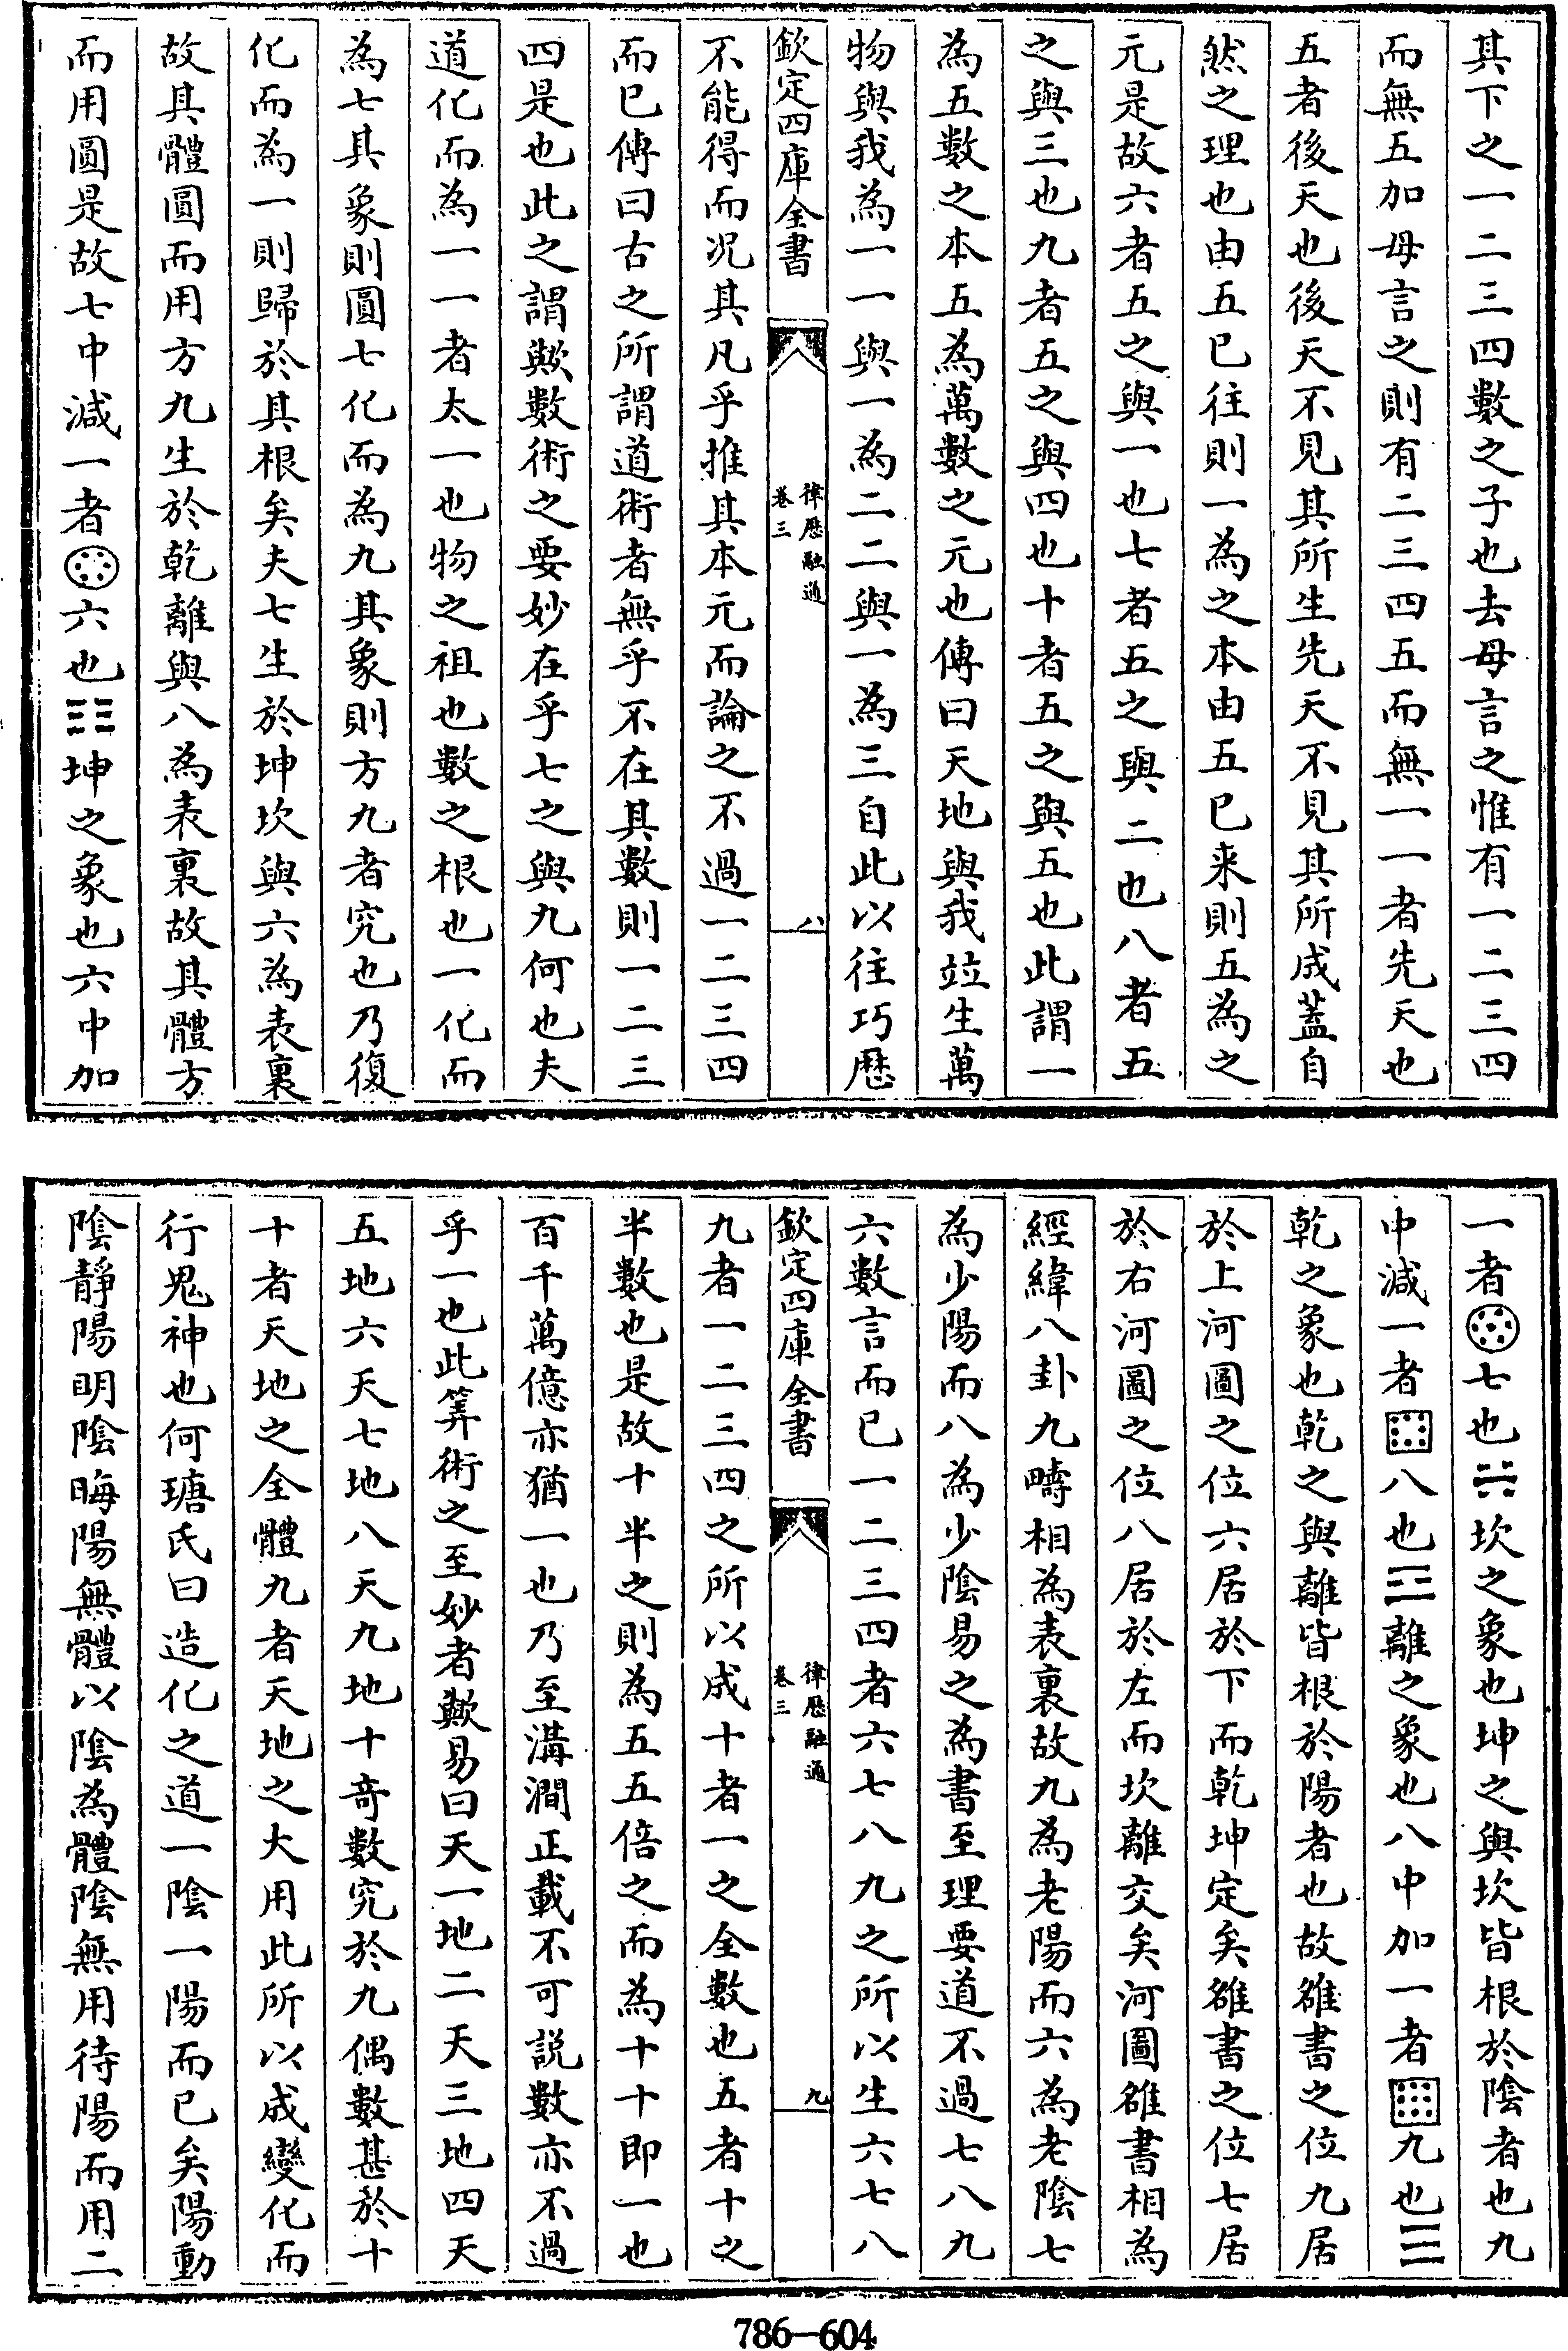 其下之一二三四數之子也去母言之惟有一二三四
而無五加母言之則有二三四五而無一一者先天也
五者後天也後天不見其所生先天不見其所成蓋自
然之理也由五已往則一為之本由五已来則五為之
元是故六者五之與一也七者五之與二也八者五
之與三也九者五之與四也十者五之與五也此謂一
為五數之本五為萬數之元也傳曰天地與我竝生萬
物與我為一一與一為二二與一為三自此以往巧歷
欽定四庫全書
律歷融通
卷三
八
不能得而况其凡乎推其本元而論之不過一二三四
而已傳曰古之所謂道術者無乎不在其數則一二三
四是也此之謂歟數術之要妙在乎七之與九何也夫
道化而為一一者太一也物之祖也數之根也一化而
為七其象則圓七化而為九其象則方九者究也乃復
化而為一則歸於其根矣夫七生於坤坎與六為表裏
故其體圓而用方九生於乾離與八為表裏故其體方
而用圓是故七中減一者六也☷坤之象也六中加
一者七也☵坎之象也坤之與坎皆根於陰者也九
中減一者八也☲離之象也八中加一者九也☰
乾之象也乾之與離皆根於陽者也故雒書之位九居
於上河圖之位六居於下而乾坤定矣雒書之位七居
於右河圖之位八居於左而坎離交矣河圖雒書相為
經緯八卦九疇相為表裏故九為老陽而六為老陰七
為少陽而八為少陰易之為書至理要道不過七八九
六數言而已一二三四者六七八九之所以生六七八
欽定四庫全書
律歷融通
卷三
九
九者一二三四之所以成十者一之全數也五者十之
半數也是故十半之則為五五倍之而為十十即一也
百千萬億亦猶一也乃至溝澗正載不可説數亦不過
乎一也此筭術之至妙者歟易曰天一地二天三地四天
五地六天七地八天九地十竒數究於九偶數甚於十
十者天地之全體九者天地之大用此所以成變化而
行鬼神也何瑭氏曰造化之道一陰一陽而已矣陽動
陰靜陽明陰晦陽無體以陰為體陰無用待陽而用二
786—604